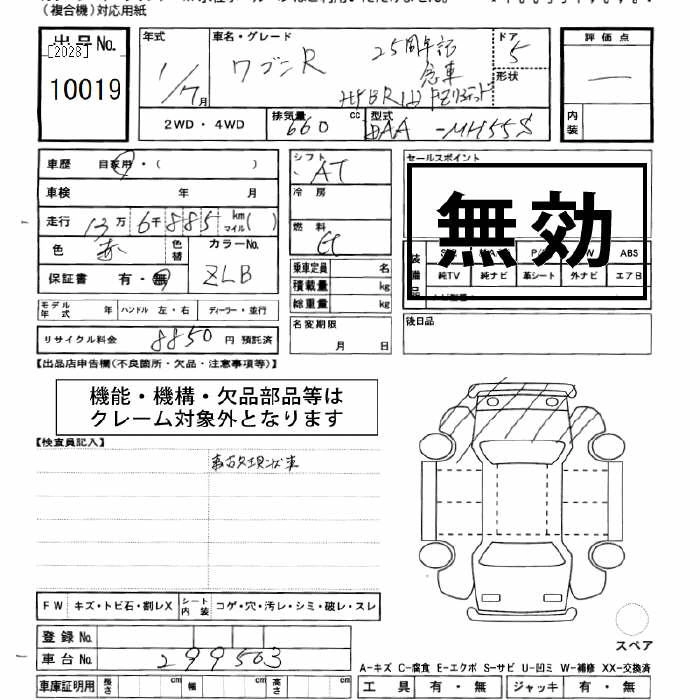 (複合機)対応用紙
出品No.
[2028]
10019
年式
1/7月
車名・グレード
ワゴンR 25周年記念車
HYBRID
ドア 5
形状
評価点
内装
2WD・4WD
排気量 660 cc
型式 DAA-MH55S
車歴 自家用・( )
車検 年 月
走行 13万6千885 km マイル( )
色 赤
色替
カラーNo. ZLB
保証書 有・無
モデル年式 年 ハンドル 左・右 ディーラー・並行
リサイクル料金 8850 円 預託済
シフト AT
冷房
燃料 G
乗車定員 名
積載量 kg
総重量 kg
名変期限
月 日
セールスポイント
無効
装備品
ABS
純TV 純ナビ 革シート 外ナビ エアB
後日品
【出品店申告欄(不良箇所・欠品・注意事項等)】
機能・機構・欠品部品等は
クレーム対象外となります
【検査員記入】
事故現状車
FW キズ・トビ石・割レX シート内装 コゲ・穴・汚レ・シミ・破レ・スレ
登録No.
車台No. 299503
車庫証明用 長さ cm 幅 cm 高さ cm
スペア
A-キズ C-腐食 E-エクボ S-サビ U-凹ミ W-補修 XX-交換済
工具 有・無 ジャッキ 有・無